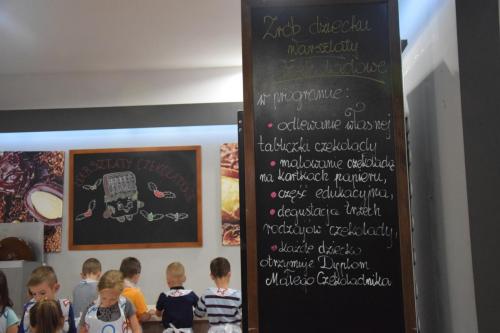 Zrób dziecku
warsztaty
czekoladowe
w programie:
• odlewanie własnej
tabliczki czekolady
• malowanie czekoladą
na kartkach papieru,
• część edukacyjna,
• degustacja trzech
rodzajów czekolady,
• każde dziecko
otrzymuje Dyplom
Małego Czekoladnika
WARSZTATY CZEKOLADOWE